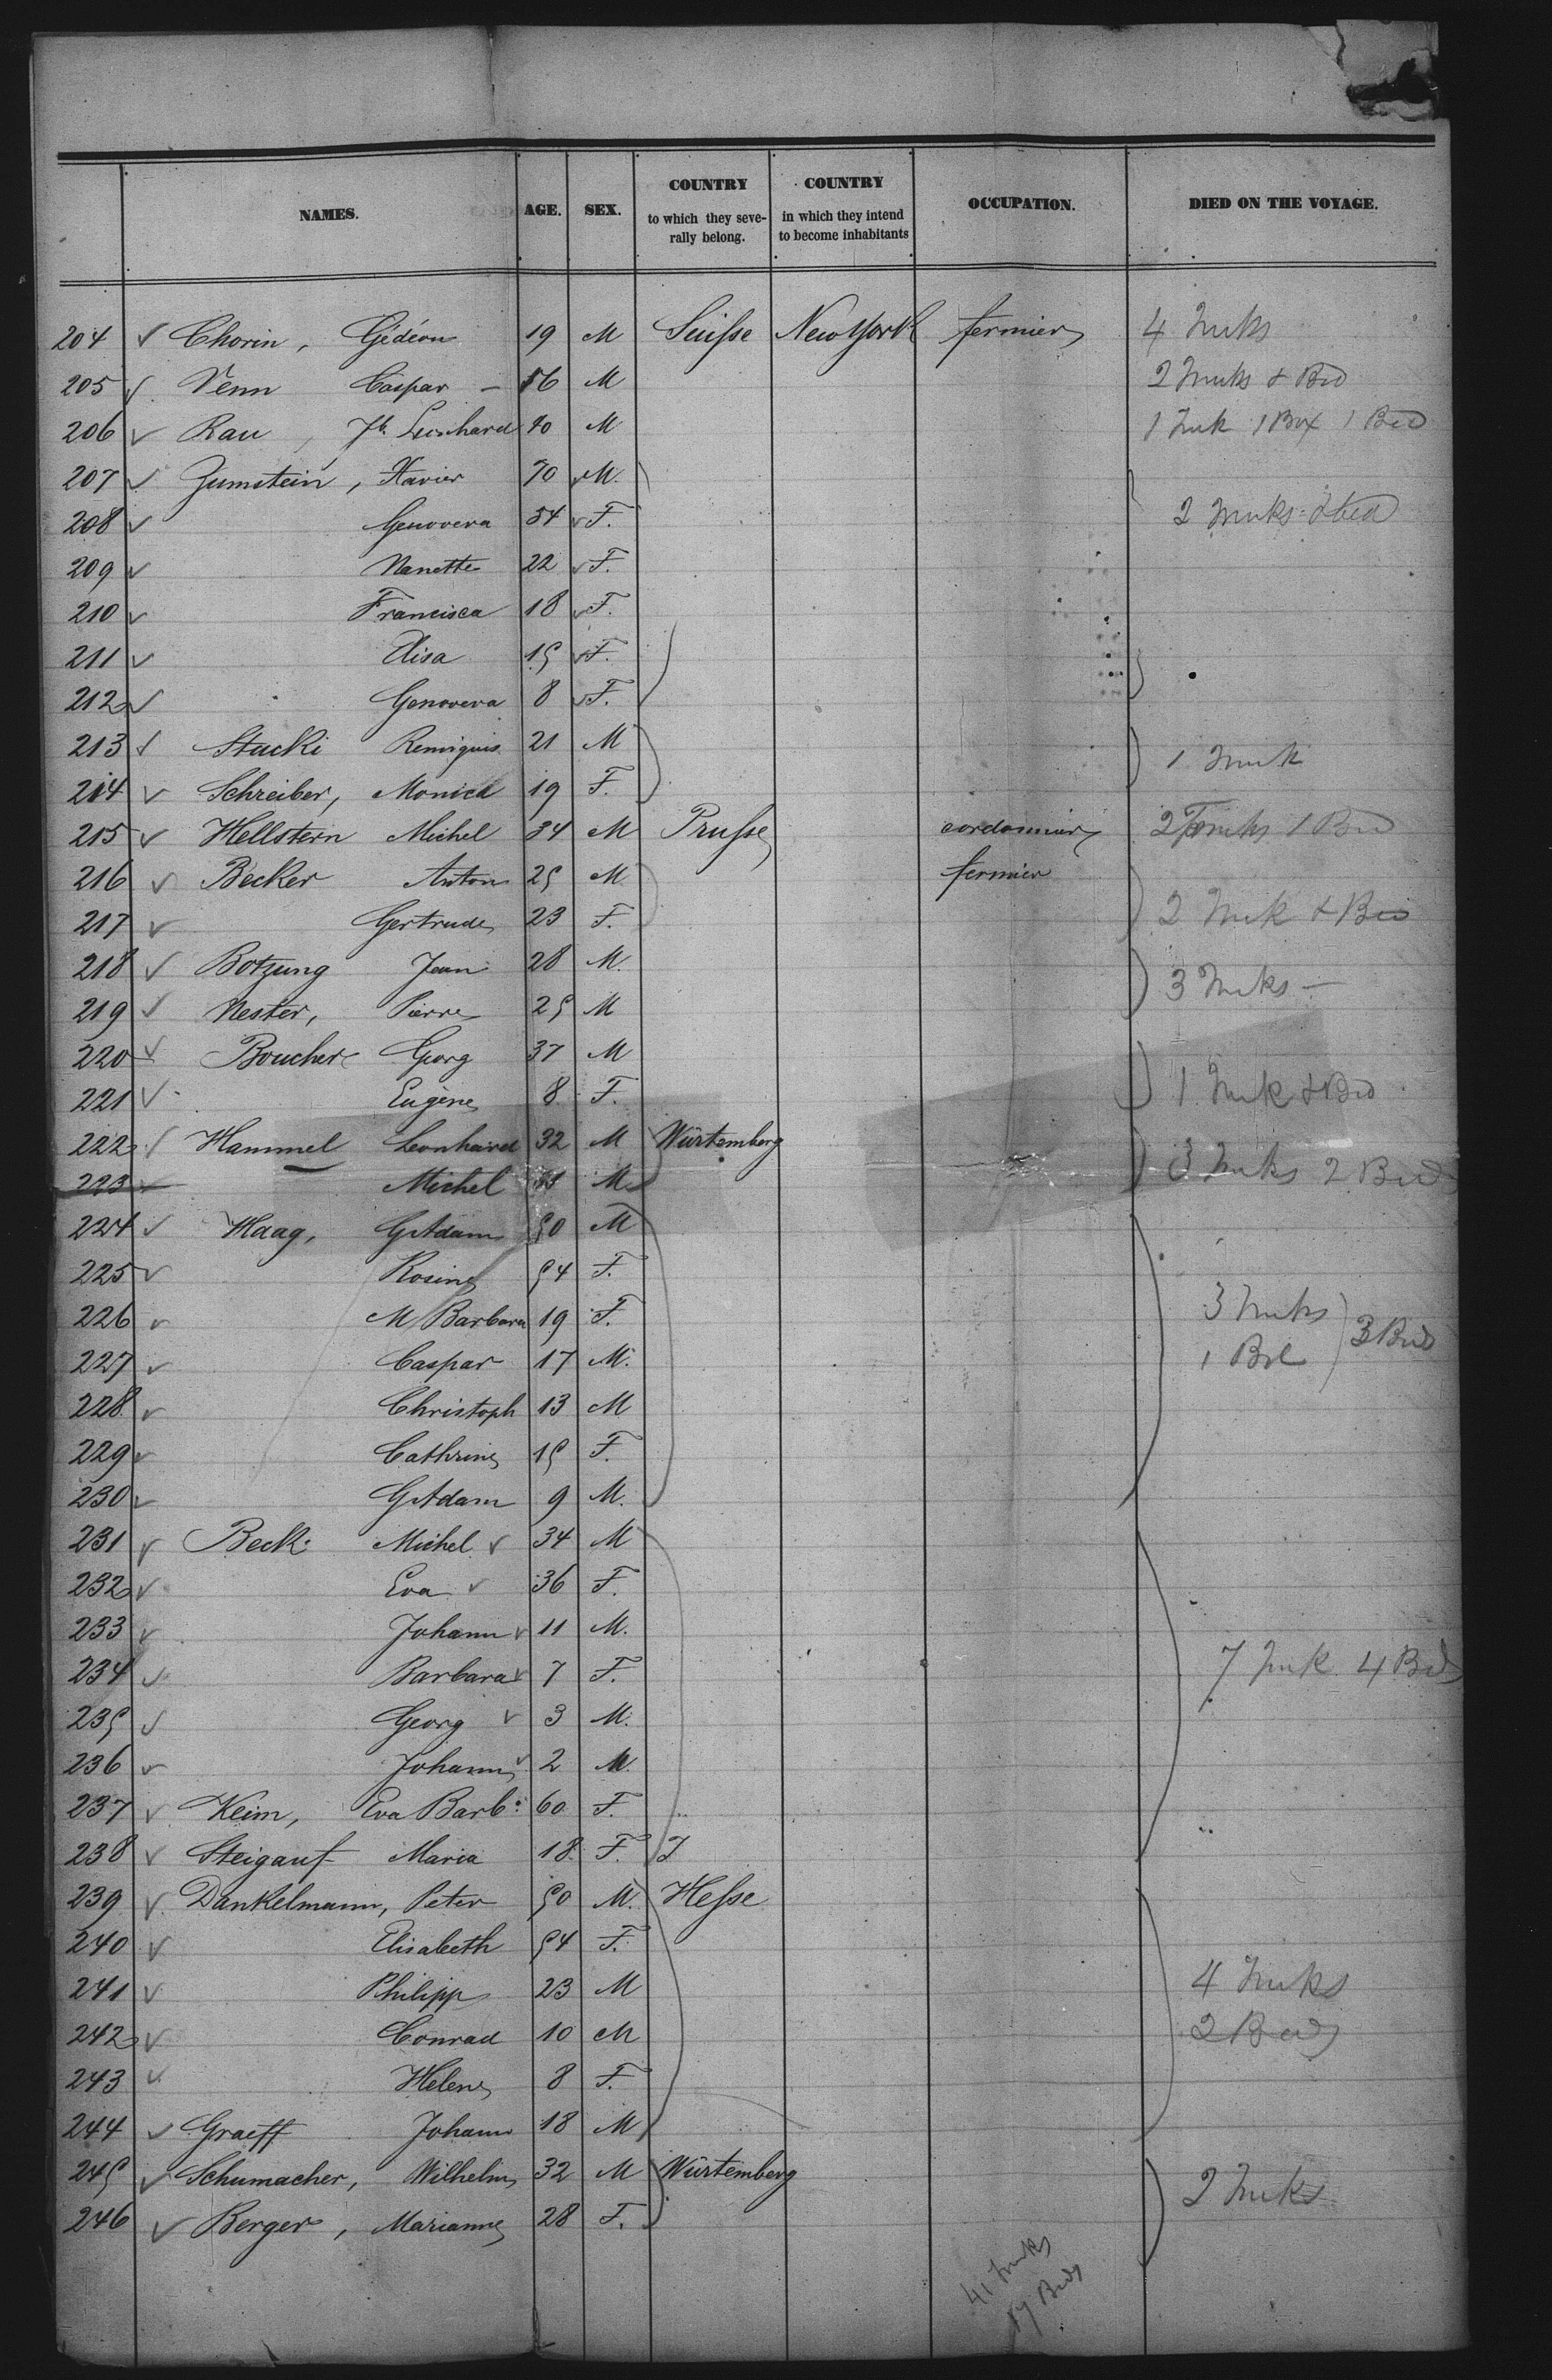 NAMES. AGE. SEX. COUNTRY to which they seve- rally belong. COUNTRY in which they intend to become inhabitants OCCUPATION. DIED ON THE VOYAGE.
204 Chorin, Gédéon 19 M Suisse New York fermier 4 Trunks
205 Venn Caspar 56 M 2 Trunks & Bed
206 Rau, Jb. Leonhard M 1 Trunk 1 Box 1 Bed
207 Zumstein, Xavier 70 M.
208 Genovera 54 F. 2 Trunks & bed
209 Nanette 22 F.
210 Francisca 18 F.
211 Elisa 15 F.
212 Genovera 8 F.
213 Stucki Remiguis 21 M
214 Schreiber, Monica 19 F. 1 Trunk
215 Hellstern Michel 34 M Prusse cordonnier 2 Trunks 1 Bed
216 Becker Anton 25 M fermier
217 Gertrude 23 F. 2 Trunk & Bed
218 Botzung Jean 28 M.
219 Nester, Pierre 25 M 3 Trunks
220 Boucher Georg 37 M
221 Eugène 8 F. 1 Trunk & Bed
222 Hammel Leonhard 32 M Würtemberg
223 Michel M 3 Trunks 2 Beds
224 Haag, G Adam 50 M
225 Rosine 54 F.
226 M Barbara 19 F. 3 Trunks
227 Caspar 17 M. 1 Bxl 3 Beds
228 Christoph 13 M
229 Cathrine 15 F.
230 G Adam 9 M.
231 Beck Michel 34 M
232 Eva 36 F.
233 Johann 11 M.
234 Barbara 7 F. 7 Trunk 4 Beds
235 Georg 3 M.
236 Johann 2 M.
237 Keim, Eva Barb: 60 F.
238 Steigauf Maria 18 F.
239 Dankelmann, Peter 50 M. Hesse
240 Elisabeth 54 F.
241 Philipp 23 M 4 Trunks
242 Conrad 10 M 2 Beds
243 Helene 8 F.
244 Graeff Johann 18 M
245 Schumacher, Wilhelm 32 M Würtemberg
246 Berger, Marianne 28 F. 2 Trunks
41 Trunks
17 Beds